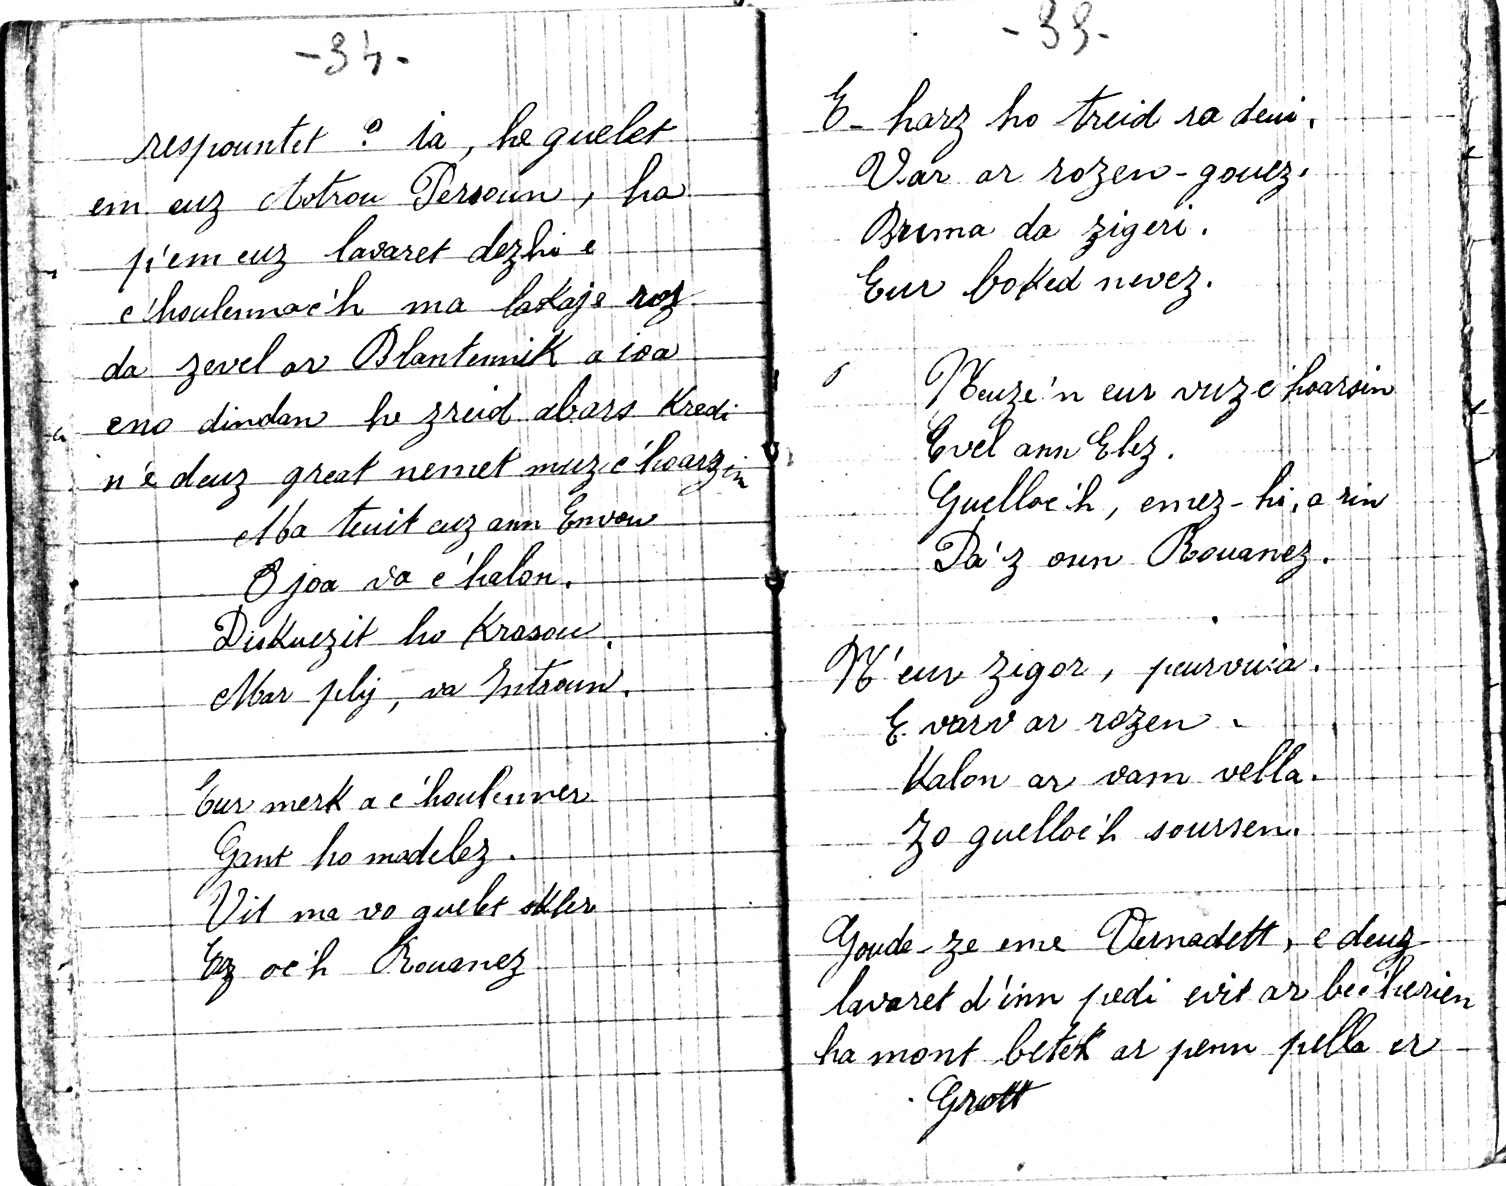 -34-
respountet ? ia, he guelet
em euz Aotrou Person, ha
p'em euz lavaret dezhi e
c'houlennac'h ma lakaje roz
da zevel ar Blantennik a ioa
eno dindan he zreid abars kredi
n'e deuz great nemet muzc'hoarzin
Ma teuit euz ann Envou
O joa va c'halon.
Diskuezit ho krasou.
Mar plij, va Introun.
Eur merk a c'houlenner
Gant ho madelez.
Vit ma vo guelet skler
Ez oc'h Rouanez
-35-
E-harz ho treid sa deui.
Var ar rozen-gouez.
Brema da zigeri.
Eur boked nevez.
Neuze'n eur vuzc'hoarsin
Evel ann Elez.
Guelloc'h, emez-hi, a rin
Pa'z oun Rouanez.
N'eur zigor, peurvuia.
E varv ar rozen.
Kalon ar vam vella.
Zo guelloc'h soursen.
Goude-ze eme Vernadett, e deuz
lavaret d'inn pedi evit ar bec'herien
ha mont betek ar penn pella er
Grott